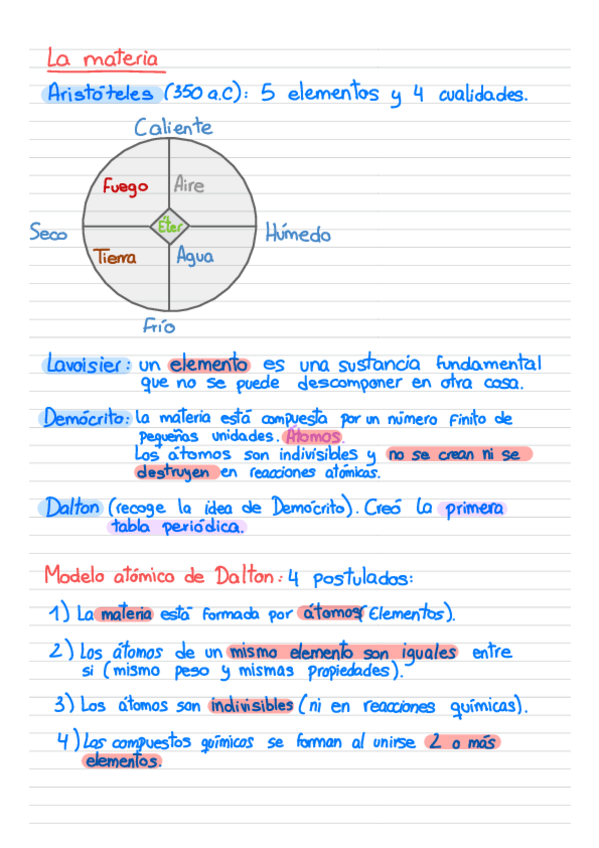 La materia
Aristóteles (350 a.C): 5 elementos y 4 cualidades.
Caliente
Fuego Aire
Seco Éter Húmedo
Tierra Agua
Frío
Lavoisier: un elemento es una sustancia fundamental
que no se puede descomponer en otra cosa.
Demócrito: la máteria está compuesta por un número finito de
pequeñas unidades. Átomos.
Los átomos son indivisibles y no se crean ni se
destruyen en reacciones atómicas.
Dalton (recoge la idea de Demócrito). Creó la primera
tabla periódica.
Modelo atómico de Dalton: 4 postulados:
1) La materia está formada por átomos (Elementos).
2) Los átomos de un mismo elemento son iguales entre
si (mismo peso y mismas propiedades).
3) Los átomos son indivisibles (ni en reacciones químicas).
4) Los compuestos químicos se forman al unirse 2 o más
elementos.